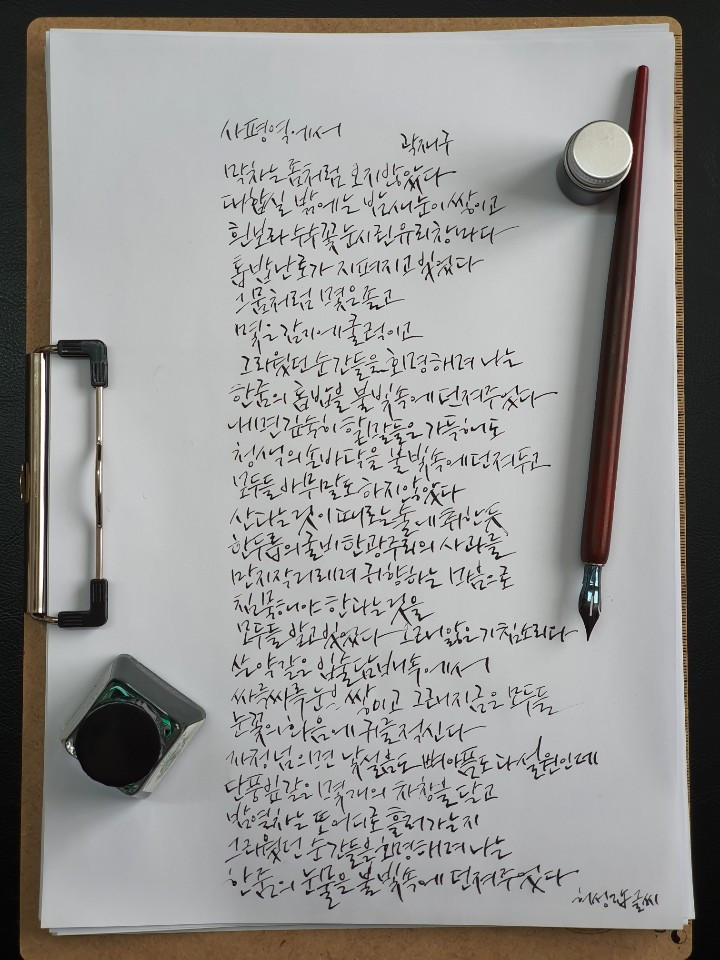 사평역에서
곽재구
막차는 좀처럼 오지 않았다
대합실 밖에는 밤새 눈이 쌓이고
흰보라 수수꽃 눈시린 유리창마다
톱밥난로가 지펴지고 있었다
그믐처럼 몇은 졸고
몇은 감기에 쿨럭이고
그리웠던 순간들을 회명해려 나는
한줌의 톱밥을 불빛속에 던져주었다
내면 깊숙히 할 말들은 가득해도
청색의 손바닥을 불빛속에 던져두고
모두들 아무말도 하지 않았다
산다는 것이 때로는 술에 취한 듯
한두름의 굴비 한광주리의 사과를
만지작거리며 귀향하는 마음으로
침묵해야 한다는 것을
모두들 알고 있었다 그래 앓은 기침소리와
쓴 약같은 입술담배속에서
싸륵싸륵 눈은 쌓이고 그래 지금은 모두들
눈꽃의 화음에 귀를 적신다
자정 넘으면 낯설음도 뼈아픔도 다 설원인데
단풍잎같은 몇개의 차창을 달고
밤열차는 또 어디로 흘러가는지
그리웠던 순간들을 회명해려 나는
한줌의 눈물을 불빛속에 던져주었다